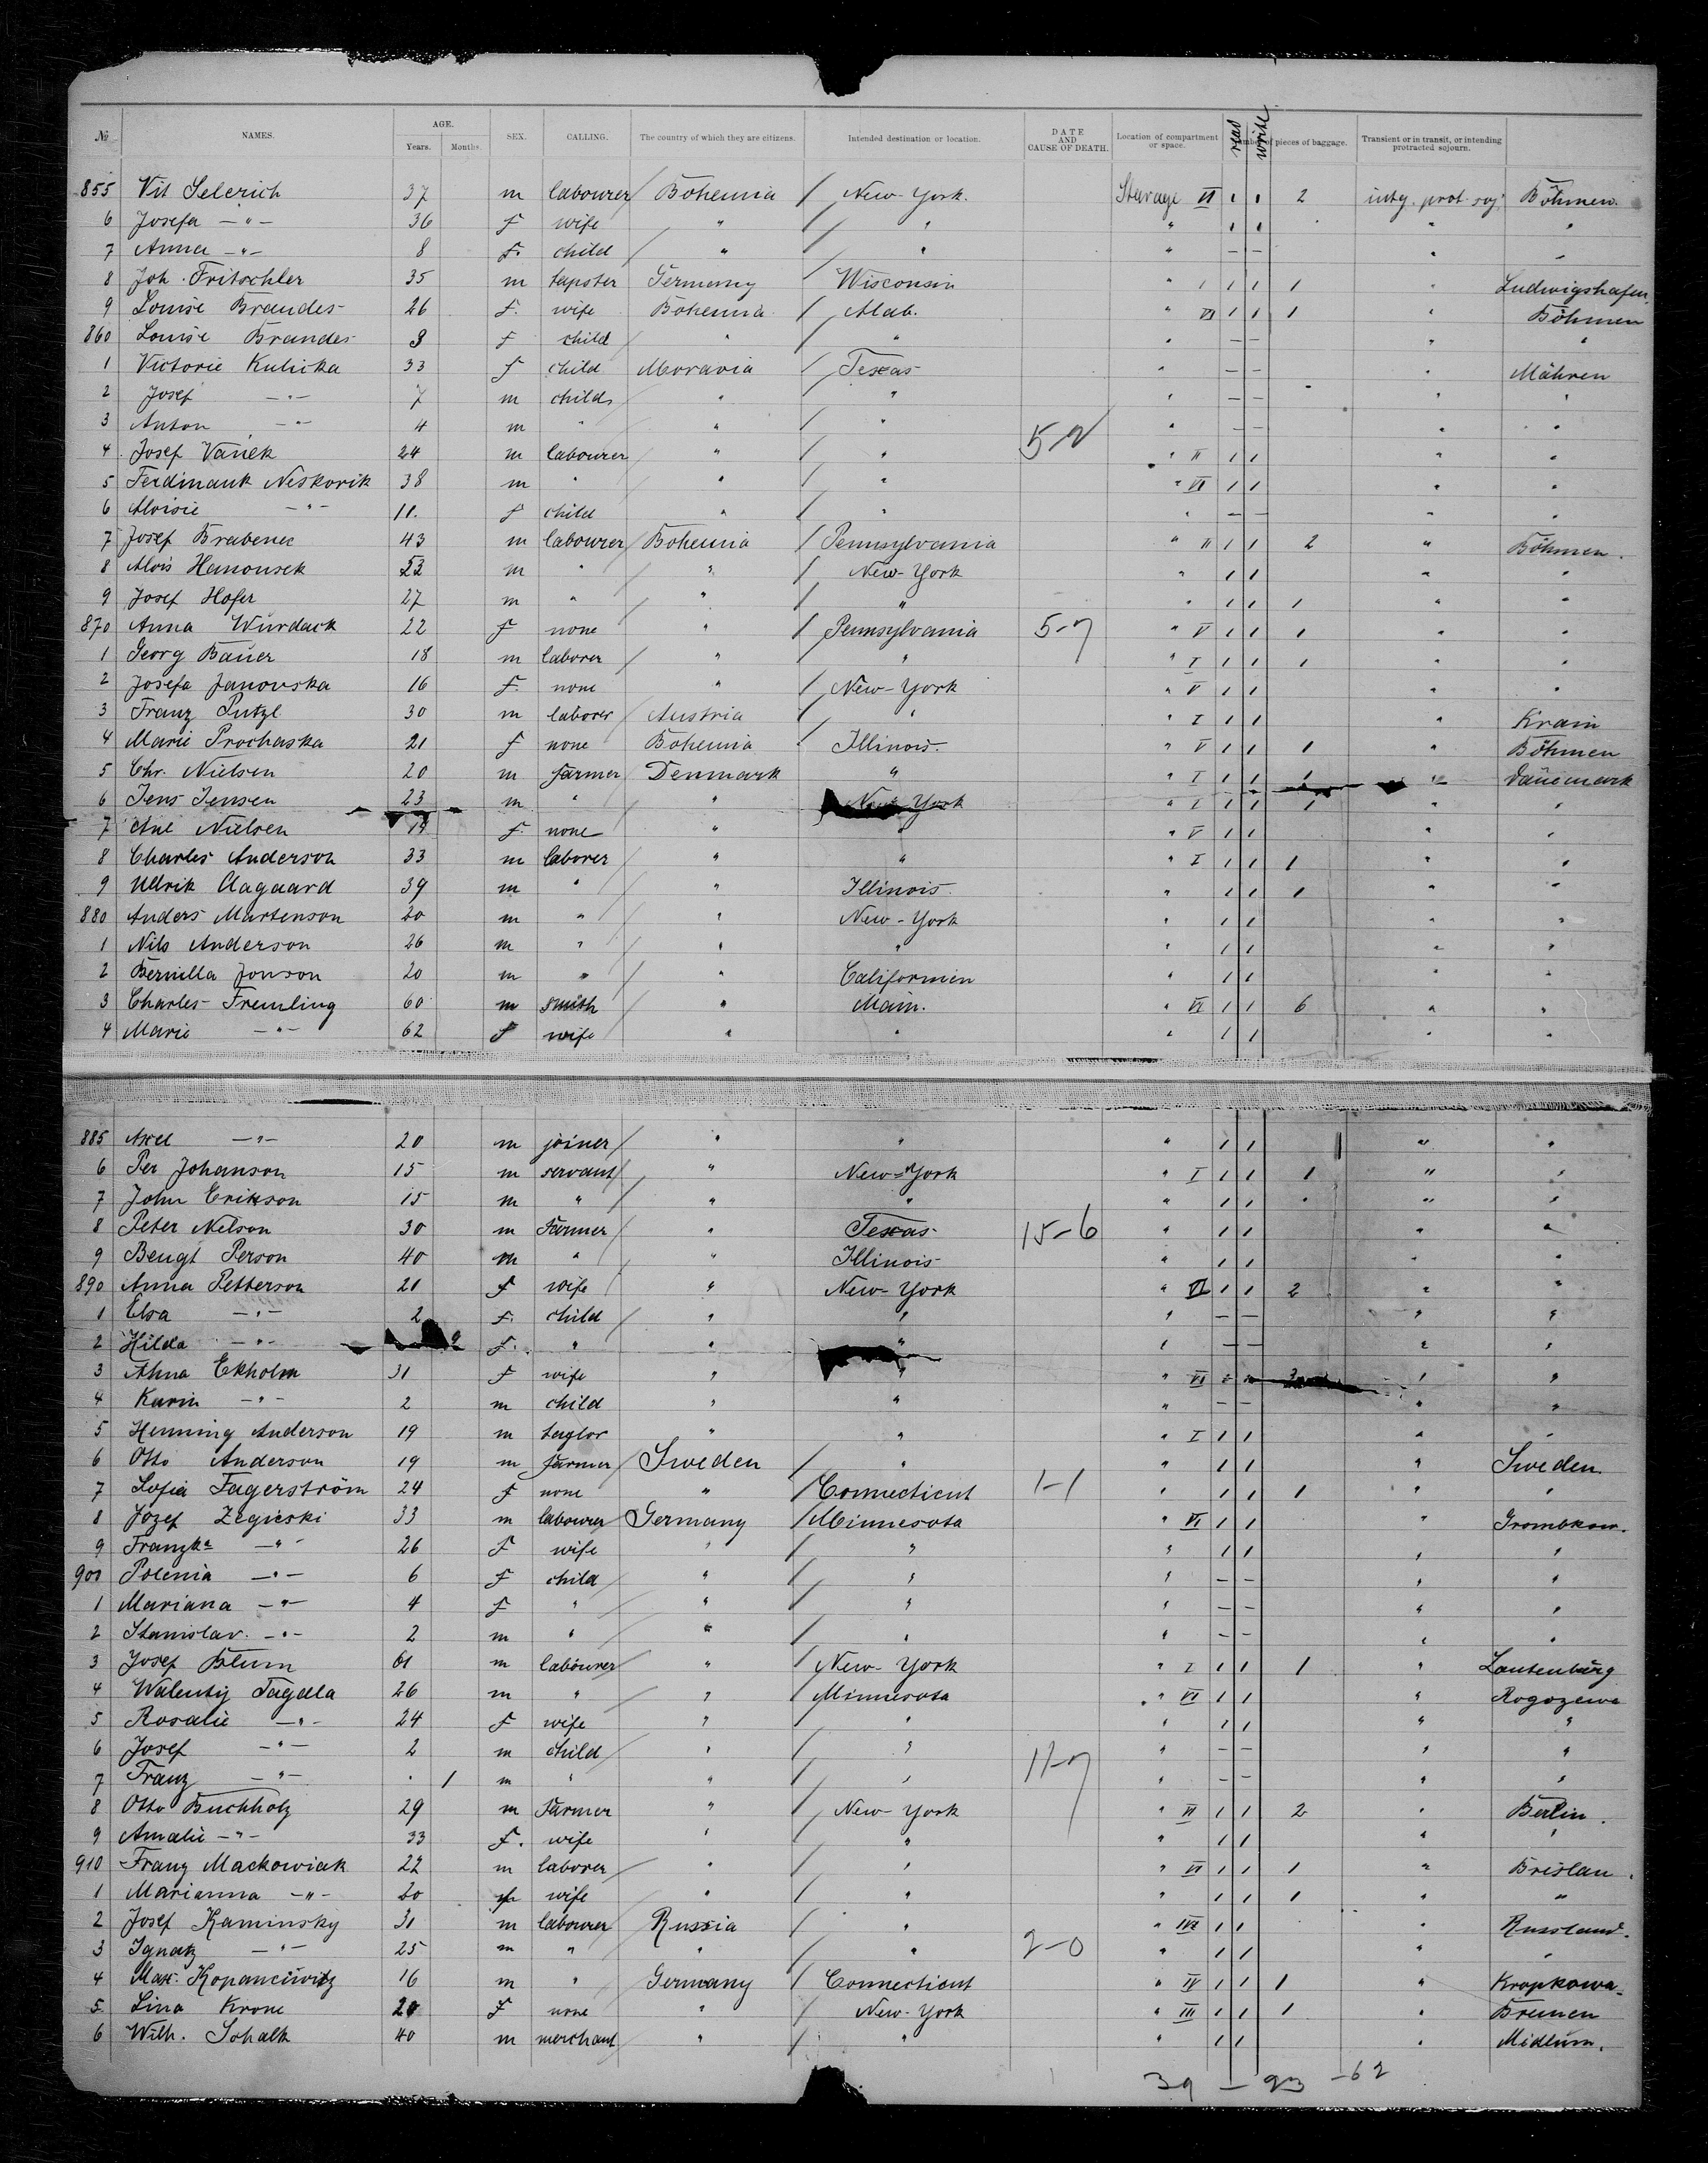 № NAMES. AGE. Years. Months. SEX. CALLING. The country of which they are citizens. Intended destination or location. DATE AND CAUSE OF DEATH. Location of compartment or space. read write Number of pieces of baggage. Transient or in transit, or intending protracted sojourn.
855 Vit Selerich 37 m labourer Bohemia New-York. Stearage VI 1 1 2 intg. prot. soj. Böhmen.
6 Josefa -"- 36 f wife " " " 1 1 " "
7 Anna -"- 8 f. child " " " - - " "
8 Joh. Fritschler 35 m tapster Germany Wisconsin " I 1 1 1 " Ludwigshafen.
9 Louise Brandes 26 f. wife Bohemia Alab. " VI 1 1 1 " Böhmen
860 Louise Brandes 3 f child " " " - - " "
1 Victorie Kulicka 33 f child Moravia Texas " - - " Mähren
2 Josef -"- 7 m child " " " - - " "
3 Anton -"- 4 m " " " " - - " "
4 Josef Vanek 24 m labourer " " 5-2 " II 1 1 " "
5 Ferdinank Neskorik 38 m " " " " VI 1 1 " "
6 Aloisie -"- 11. f child " " " - - " "
7 Josef Brabenec 43 m labourer Bohemia Pennsylvania " II 1 1 2 " Böhmen.
8 Alois Hanousek 52 m " " New-York " 1 1 " "
9 Josef Hofer 27 m " " " " 1 1 1 " "
870 Anna Wurdack 22 f none " Pennsylvania 5-7 " V 1 1 1 " "
1 Georg Bauer 18 m laborer " " " I 1 1 1 " "
2 Josefa Janovska 16 f. none " New-York " V 1 1 " "
3 Franz Putzl 30 m laborer Austria " " I 1 1 " Krain
4 Marie Prochaska 21 f none Bohemia Illinois. " V 1 1 1 " Böhmen
5 Chr. Nielsen 20 m farmer Denmark " " I 1 1 1 " Dänemark
6 Jens Jensen 23 m " " New York " I 1 1 1 " "
7 Ane Nielsen 19 f. none " " " V 1 1 " "
8 Charles Anderson 33 m laborer " " " I 1 1 1 " "
9 Ulrik Aagaard 39 m " " Illinois " 1 1 1 " "
880 Anders Martenson 20 m " " New-York " 1 1 " "
1 Nils Anderson 26 m " " " " 1 1 " "
2 Bernilla Jonson 20 m " " Californien " 1 1 " "
3 Charles Fremling 60 m smith " Main. " VI 1 1 6 " "
4 Marie -"- 62 f wife " " " 1 1 " "
885 Axel -"- 20 m joiner " " " 1 1 " "
6 Per Johanson 15 m servant " New-York " I 1 1 1 " "
7 John Erikson 15 m " " " " 1 1 " " "
8 Peter Nelson 30 m Farmer " Texas 15-6 " 1 1 " "
9 Bengt Person 40 m " " Illinois " 1 1 " "
890 Anna Petterson 21 f wife " New-York " VI 1 1 2 " "
1 Elsa -"- 2 f. child " " " - - " "
2 Hilda -"- f. " " " " - - " "
3 Anna Ekholm 31 f wife " " " VI " "
4 Karin -"- 2 m child " " " - - " "
5 Henning Anderson 19 m taylor " " " I 1 1 " "
6 Otto Anderson 19 m farmer Sweden " " 1 1 " Sweden.
7 Sofia Fagerström 24 f none " Connecticut 1-1 " 1 1 1 " "
8 Jozef Zegieski 33 m labourer Germany Minnesota " VI 1 1 " Grombkow.
9 Franzka -"- 26 f wife " " " 1 1 " "
900 Polenia -"- 6 f child " " " - - " "
1 Mariana -"- 4 f " " " " - - " "
2 Stanislav. -"- 2 m " " " " - - " "
3 Josef Blum 61 m labourer " New-York " I 1 1 1 " Lautenburg
4 Walenty Tagalla 26 m " " Minnesota " VI 1 1 " Rogozewe
5 Rosalie -"- 24 f wife " " " 1 1 " "
6 Josef -"- 2 m child " " " - - " "
7 Franz -"- . 1 m " " " 11-7 " - - " "
8 Otto Buchholz 29 m Farmer " New-York " VI 1 1 2 " Berlin.
9 Amalie -"- 33 f. wife " " " 1 1 " "
910 Franz Mackowiak 22 m laborer " " " VI 1 1 1 " Breslau.
1 Marianna -"- 20 f wife " " " 1 1 1 " "
2 Josef Kaminsky 31 m labourer Russia " " 1 1 " Russland.
3 Ignatz -"- 25 m " " " 2-0 " 1 1 " "
4 Max. Kopanciwitz 16 m " Germany Connecticut " IV 1 1 1 " Kropkowa.
5. Lina Krone 20 f none " New-York " III 1 1 1 " Bremen
6 Wilh. Schalk 40 m merchant " " " 1 1 " Midlum.
39 - 23 - 62